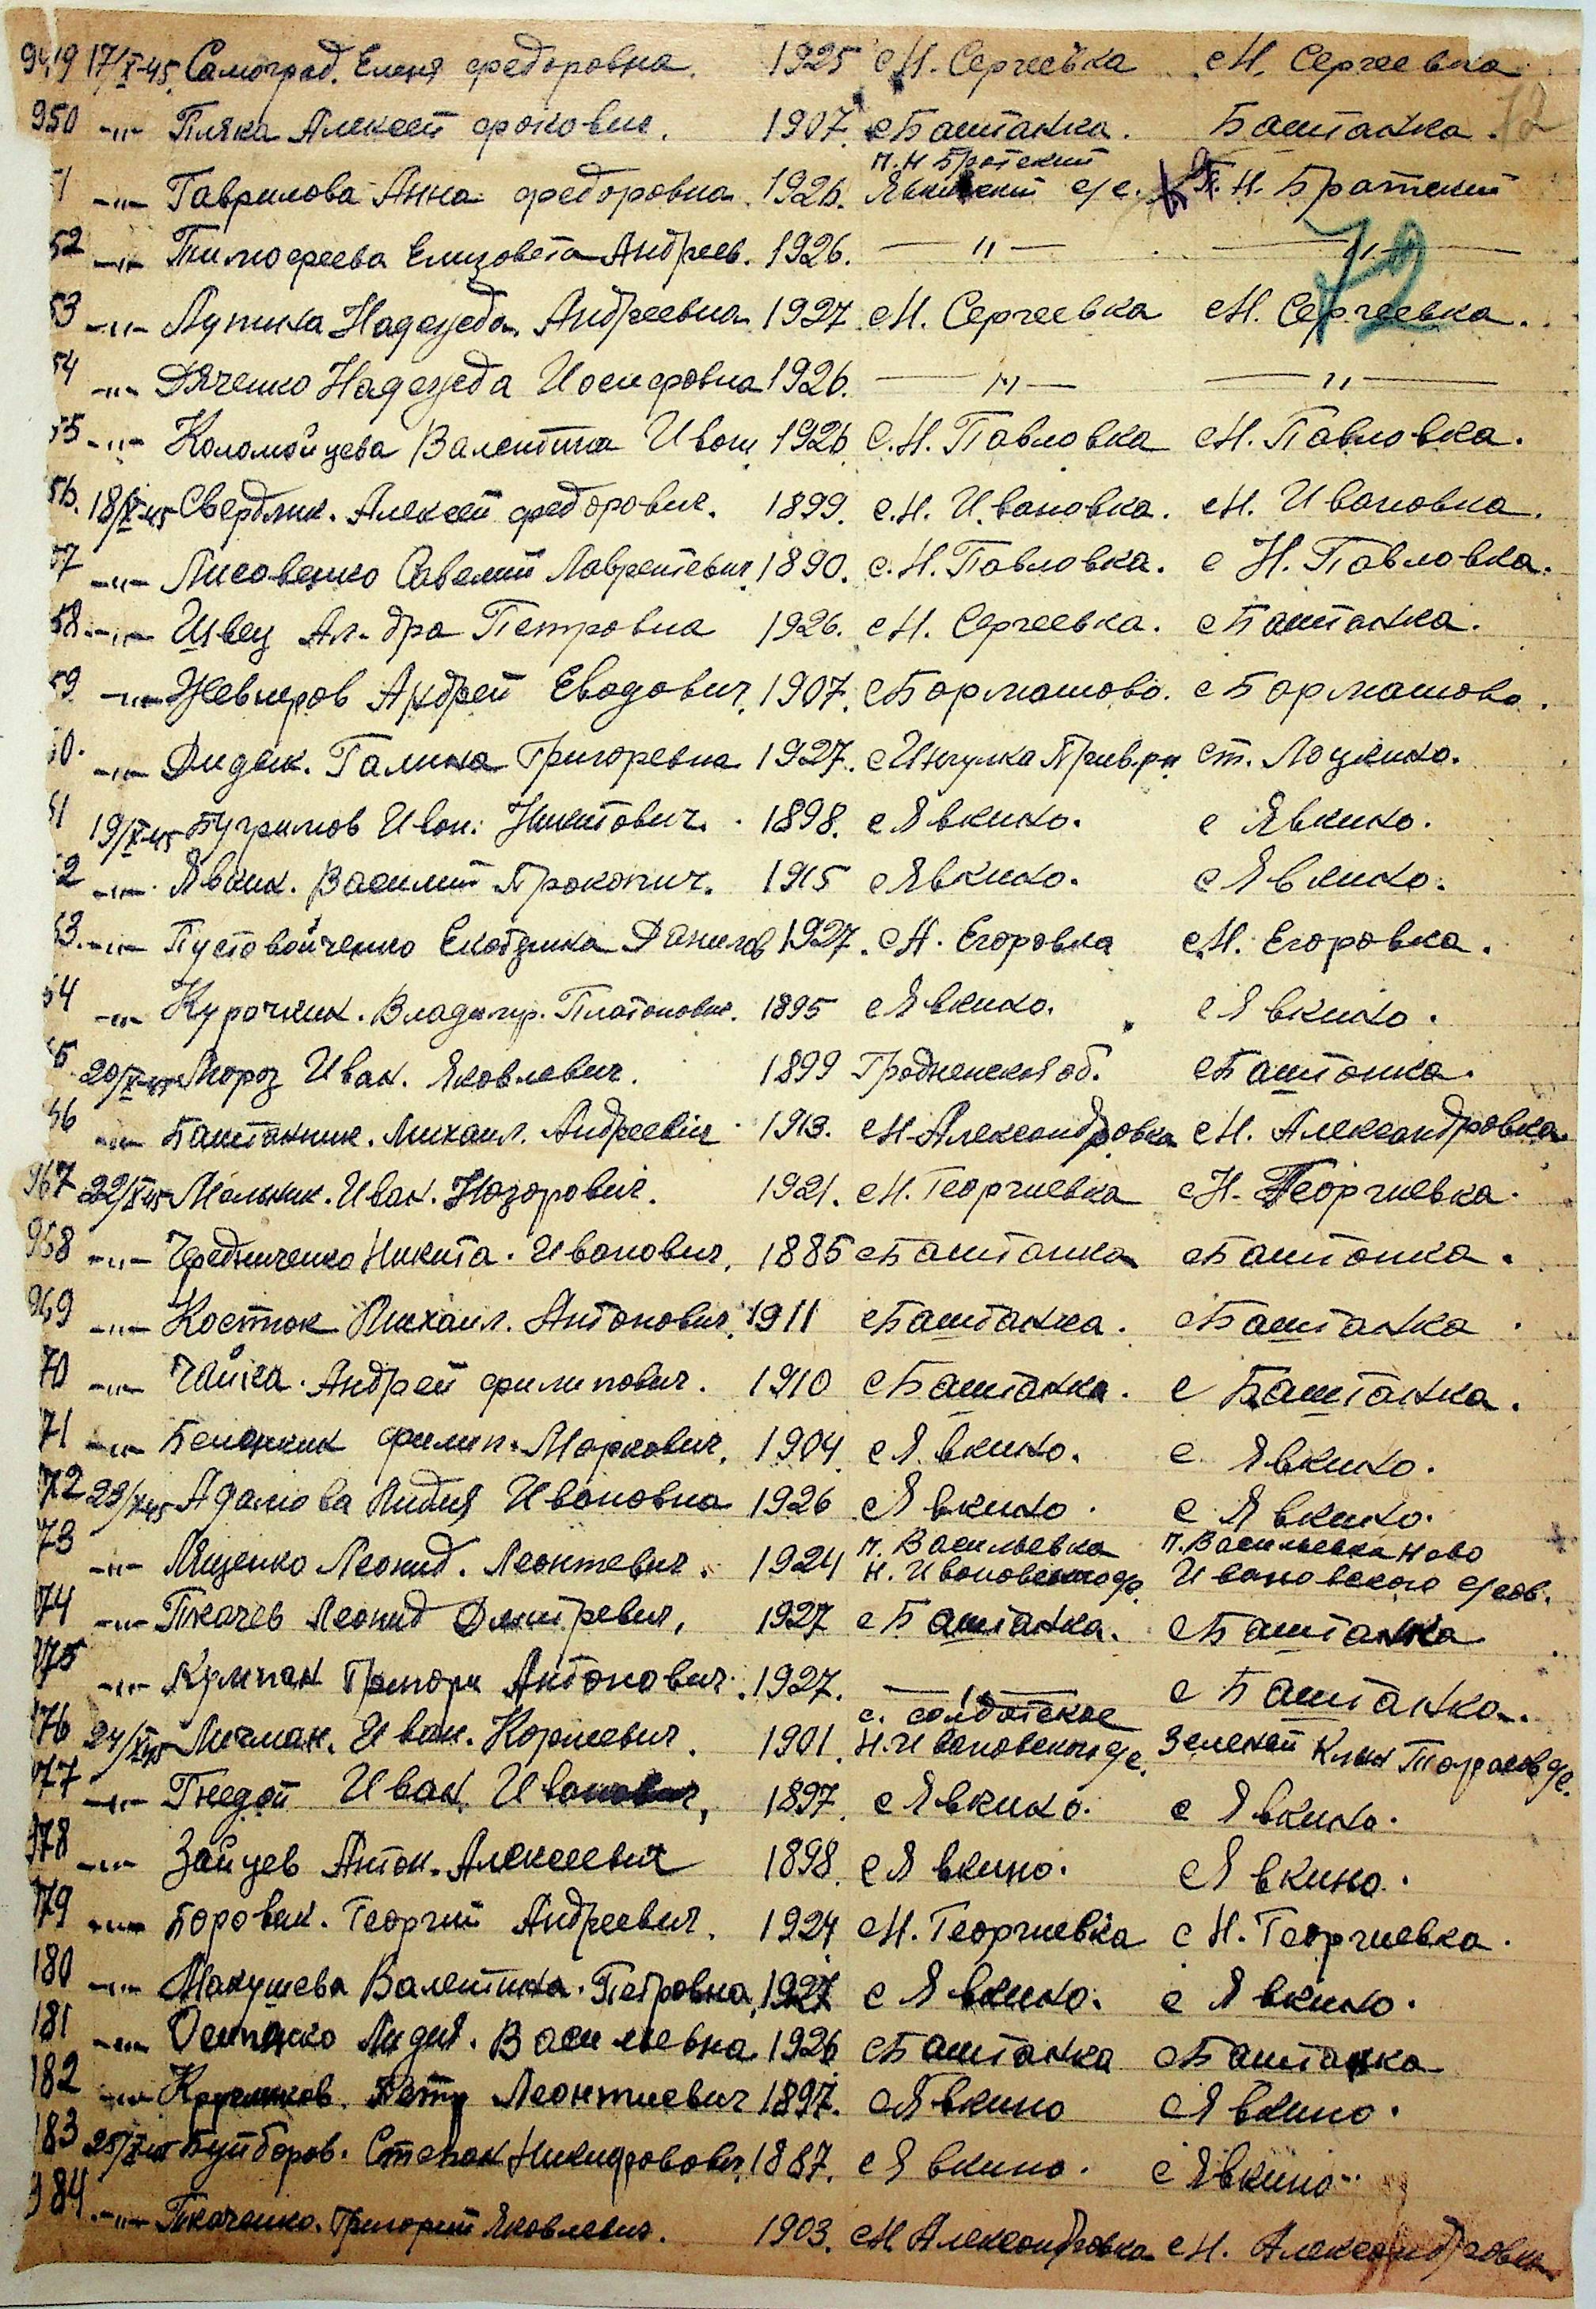 949 17/X-45 Самоград. Еленя федоровна. 1925 с Н. Сергеевка с Н. Сергеевка
950 -"- Пляка Алексей фоковис. 1907. с Баштанка. Баштанка. 72
51 -"- Гаврилова Анна федоровна. 1926. п. Н Братский Явкинский с/с. П. Н. Братский
52 -"- Тимофеева Елизовета Андреев. 1926. — " — — " —
72
53 -"- Лупина Надежда Андреевна 1927 с Н. Сергеевка с Н. Сергеевка.
54 -"- Дяченко Надежда Иосифовна 1926. — " — — " —
55 -"- Коломойцева Валентина Иван 1926 С. Н. Павловка с Н. Павловка.
56. 18/X-45 Свердлик. Алексей федорович. 1899. с. Н. Ивановка. с Н. Ивановка.
57 -"- Лисовенко Савелий Лаврентевич. 1890. с. Н. Павловка. с Н. Павловка.
58. -"- Швец Ал-дра Петровна 1926. с Н. Сергеевка. с Баштанка.
59 -"- Жевнеров Андрей Евадович. 1907. с Бармашово. с Бармашово.
60. -"- Дидык. Галина Григоревна 1927. с Ингулка Прив. рн ст. Лоцкино.
61 19/X-45 Бугримов Иван. Никитович. 1898. с Явкино. с Явкино.
62 -"- Явкин. Василий Прокопич. 1915 с Явкино. с Явкино.
63. -"- Пустовойченко Екатерина Данилов 1927. с Н. Егоровка с Н. Егоровка.
64 -"- Курочкин. Владимир. Платонович. 1895 с Явкино. с Явкино.
65. 20/X-45 Мороз Иван. Яковлевич. 1899 Гродненской об. с Баштанка.
66 -"- Баштанник. Михаил. Андреевич 1913. с Н. Александровка с Н. Александровка.
967 22/X-45 Мельник. Иван. Назорович. 1921. с Н. Георгиевка с Н. Георгиевка.
968 -"- Чередниченко Никита. Иванович. 1885 с Баштанка с Баштанка.
969 -"- Костюк Михаил. Антонович. 1911 с Баштанка. с Баштанка
70 -"- Чайка. Андрей филипович. 1910 с Баштанка. с Баштанка.
71 -"- филип. Маркович. 1904. с Явкино. с. Явкино.
72 23/X-45 Адамова Лидия Ивановна 1926 с Явкино. с. Явкино.
73 -"- Яценко Леонид. Леонтевич. 1924 п. Васильевка Н. Ивановского с/с. п. Васильевка Ново Ивановского с/сов.
74 -"- Ткачев Леонид Дмитревич. 1927 с Баштанка. с Баштанка
975 -"- Кулпан Григори Антонович. 1927. — " — с Баштанка.
76 24/X-45 Личман. Иван. Корнеевич. 1901. с. Солдатское Н. Ивановского с/с. Зеленый Клин Тарасов с/с.
977 -"- Гнедой Иван Иванович, 1897. с Явкино. с Явкино.
978 -"- Зайцев Антон. Алексеевич 1898. с Явкино. с Явкино.
979 -"- Боровик. Георгий Андреевич. 1924 с Н. Георгиевка с Н. Георгиевка.
180 -"- Макушева Валентина. Петровна, 1927 с Явкино. с Явкино.
181 -"- Остапко Лидия. Васильевна 1926 с Баштанка с Баштанка
182 -"- Петр Леонтиевич 1897. с Явкино с Явкино.
183 25/X-45 Буйборов. Степан Никифорович 1887. с Явкино. с Явкино.
984. -"- Ткаченко. Григорий Яковлевич. 1903. с Н. Александровка с Н. Александровка